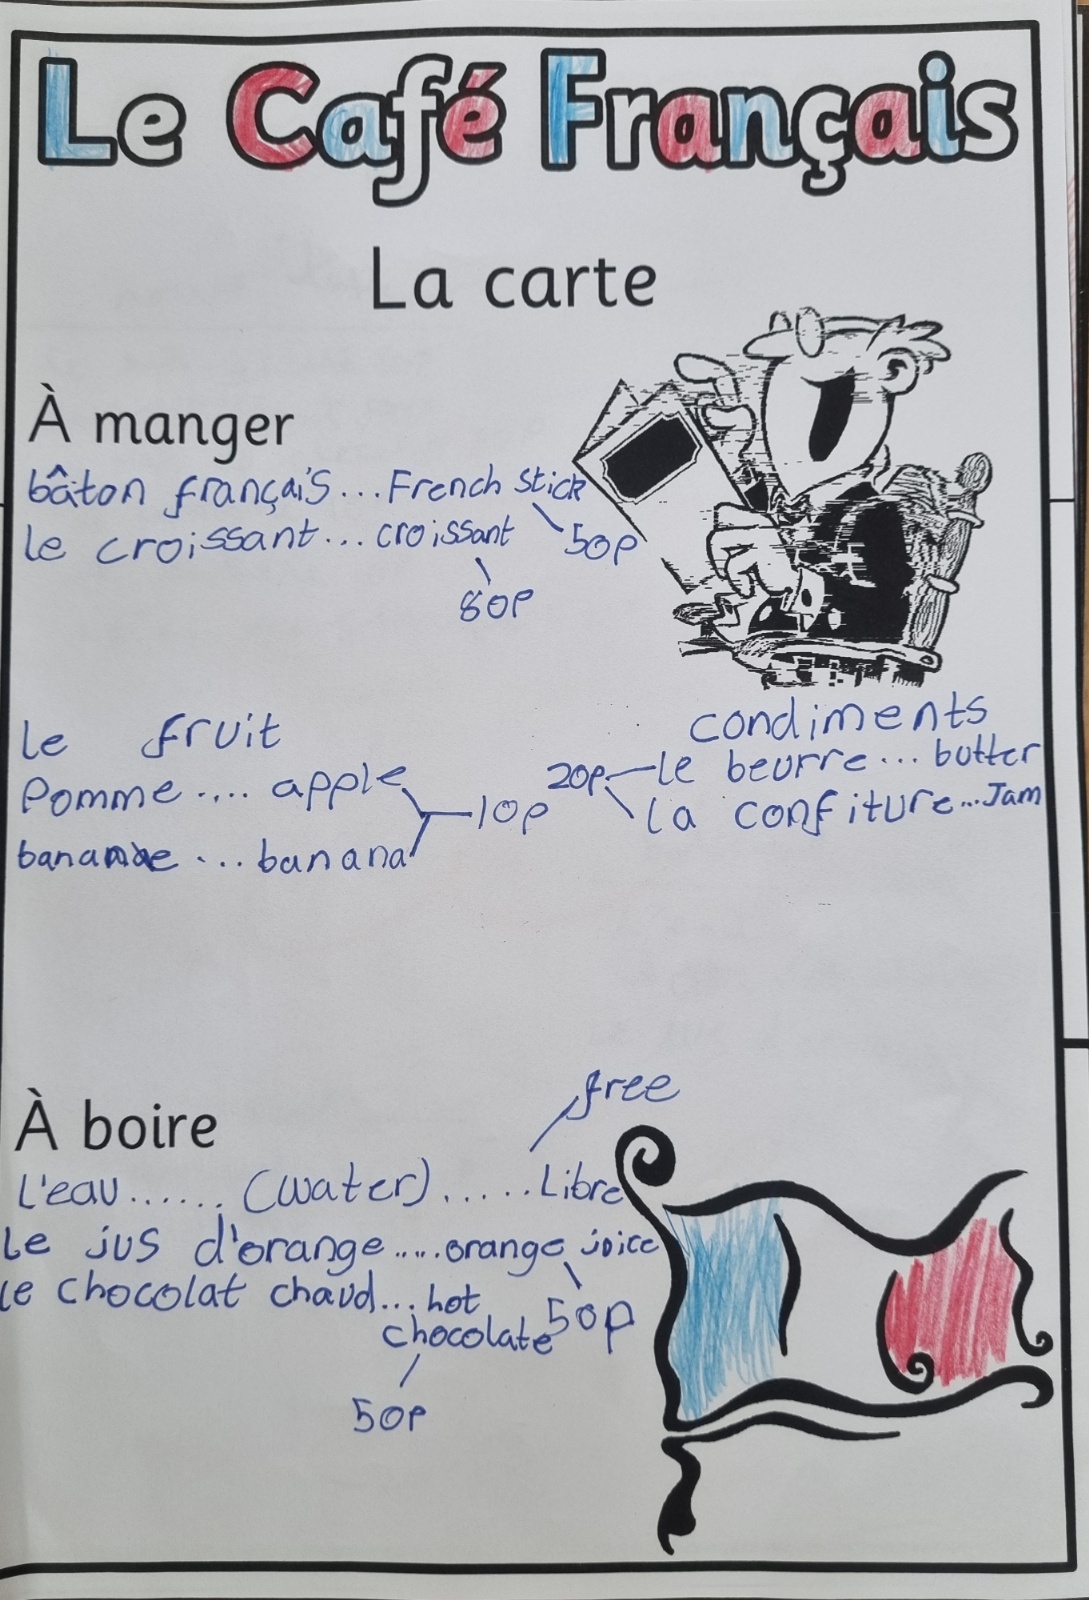 Le Café Français
La carte
À manger
bâton français...French stick
50p
le croissant... croissant
80p
le fruit
Pomme .... apple
banane ... banana
10p
condiments
20p
le beurre... butter
la confiture...Jam
À boire
free
L'eau...... (water)..... Libre
Le jus d'orange.....orange joice
50p
le chocolat chaud... hot
chocolate
50p